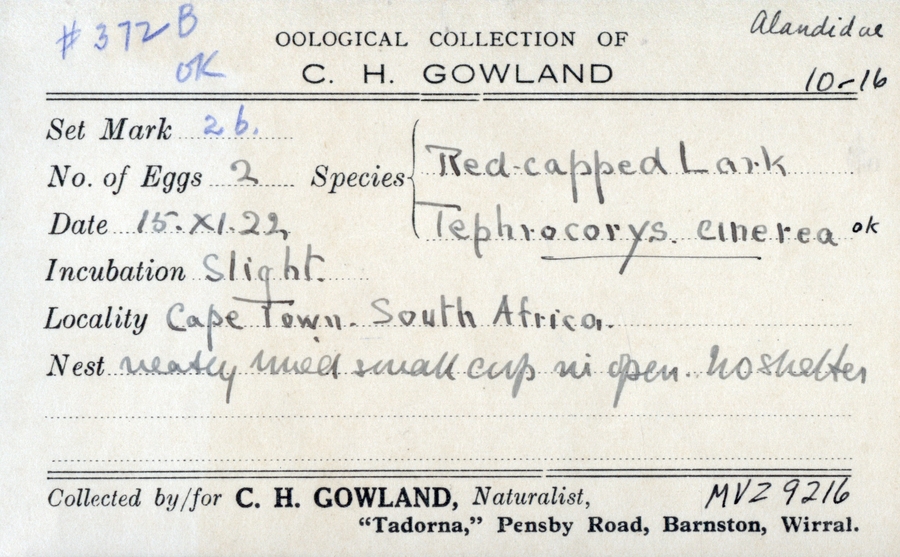 #372B
OK
OOLOGICAL COLLECTION OF
C. H. GOWLAND
Alaudidae
10-16
Set Mark 2b.
No. of Eggs 2
Species Red-capped Lark
Date 15.XI.22
Tephrocorys. cinerea ok
Incubation Slight.
Locality Cape Town. South Africa.
Nest neatly lined small cup in open. No shelter
Collected by/for C. H. GOWLAND, Naturalist,
MVZ 9216
"Tadorna," Pensby Road, Barnston, Wirral.